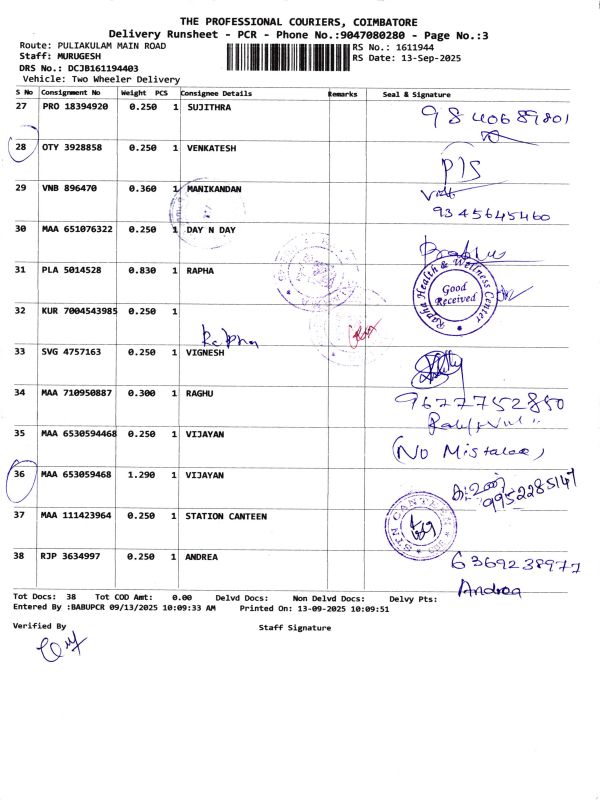 THE PROFESSIONAL COURIERS, COIMBATORE
Delivery Runsheet - PCR - Phone No.:9047080280 - Page No.:3
Route: PULIAKULAM MAIN ROAD
RS No.: 1611944
Staff: MURUGESH
RS Date: 13-Sep-2025
DRS No.: DCJB161194403
Vehicle: Two Wheeler Delivery
S No Consignment No Weight PCS Consignee Details Remarks Seal & Signature
27 PRO 18394920 0.250 1 SUJITHRA
9840689801
28 OTY 3928858 0.250 1 VENKATESH
29 VNB 896470 0.360 1 MANIKANDAN
9345645460
30 MAA 651076322 0.250 1 DAY N DAY
31 PLA 5014528 0.830 1 RAPHA
Rapha Health & Wellness Center
Good
Received
32 KUR 7004543985 0.250 1
Rapha
33 SVG 4757163 0.250 1 VIGNESH
34 MAA 710950887 0.300 1 RAGHU
9677752850
35 MAA 6530594468 0.250 1 VIJAYAN
(No Mistake)
36 MAA 653059468 1.290 1 VIJAYAN
9952285147
37 MAA 111423964 0.250 1 STATION CANTEEN
STN CANTEEN
38 RJP 3634997 0.250 1 ANDREA
6369238977
Andrea
Tot Docs: 38 Tot COD Amt: 0.00 Delvd Docs: Non Delvd Docs: Delvy Pts:
Entered By :BABUPCR 09/13/2025 10:09:33 AM Printed On: 13-09-2025 10:09:51
Verified By
Staff Signature